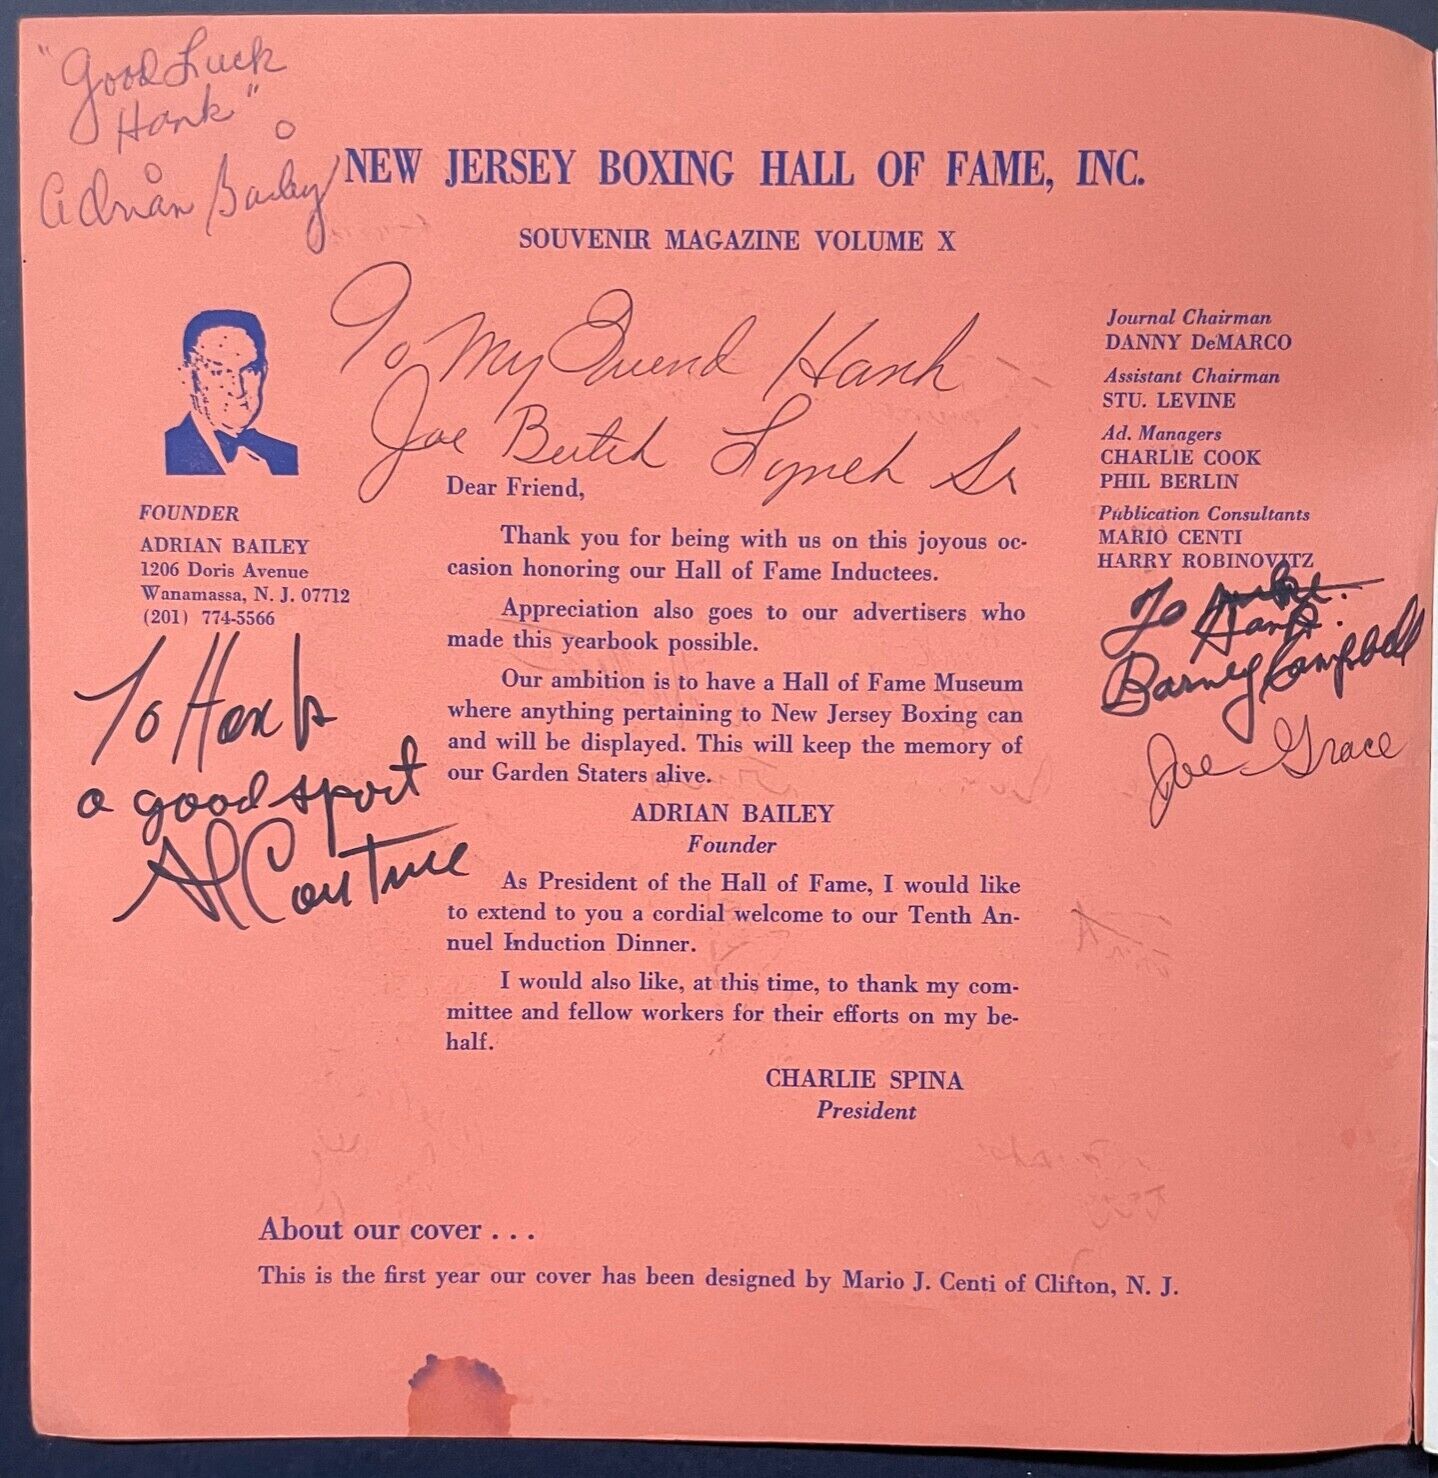 "Good Luck
Hank"
Adrian Bailey
NEW JERSEY BOXING HALL OF FAME, INC.
SOUVENIR MAGAZINE VOLUME X
To My Friend Hank
Joe Butch Lynch Sr
FOUNDER
ADRIAN BAILEY
1206 Doris Avenue
Wanamassa, N. J. 07712
(201) 774-5566
To Hank
a good sport
Al Couture
Dear Friend,
Thank you for being with us on this joyous oc-
casion honoring our Hall of Fame Inductees.
Appreciation also goes to our advertisers who
made this yearbook possible.
Our ambition is to have a Hall of Fame Museum
where anything pertaining to New Jersey Boxing can
and will be displayed. This will keep the memory of
our Garden Staters alive.
ADRIAN BAILEY
Founder
As President of the Hall of Fame, I would like
to extend to you a cordial welcome to our Tenth An-
nuel Induction Dinner.
I would also like, at this time, to thank my com-
mittee and fellow workers for their efforts on my be-
half.
CHARLIE SPINA
President
Journal Chairman
DANNY DeMARCO
Assistant Chairman
STU. LEVINE
Ad. Managers
CHARLIE COOK
PHIL BERLIN
Publication Consultants
MARIO CENTI
HARRY ROBINOVITZ
To
Hank.
Barney Campbell
Joe Grace
About our cover . . .
This is the first year our cover has been designed by Mario J. Centi of Clifton, N. J.